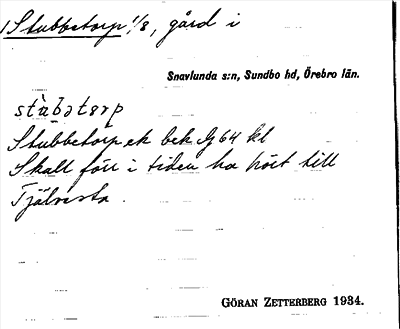 1 Stubbetorp 1/8, gård i
Snavlunda s:n, Sundbo hd, Örebro län.
stùbətɵrp
Stubbetorp ek bek Jg 64 kl
Skall förr i tiden ha hört till
Tjälvesta.
GÖRAN ZETTERBERG 1934.